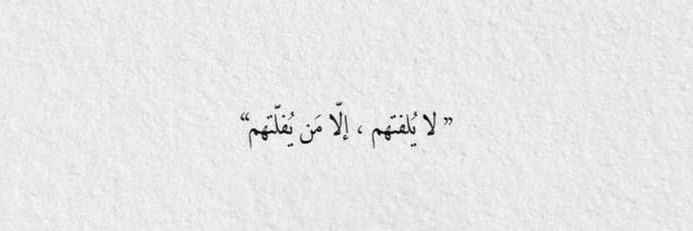 ” لا يُلفتهم ، إلّا مَن يُفلّتهم “